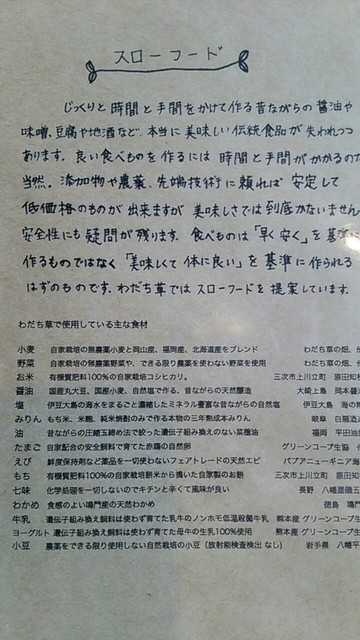 スローフード
じっくりと時間と手間をかけて作る昔ながらの醤油や
味噌、豆腐や地酒など、本当に美味しい伝統食品が失われつつ
あります。良い食べものを作るには時間と手間がかかるのだ
当然。添加物や農薬、先端技術に頼れば安定して
低価格のものが出来ますが美味しさでは到底かないません
安全性にも疑問が残ります。食べものは「早く安く」を基準に
作るものではなく「美味しくて体に良い」を基準に作られる
はずのものです。わだち草ではスローフードを提案しています。
わだち草で使用している主な食材
小麦 自家栽培の無農薬小麦と岡山産、福岡産、北海道産をブレンド わだち草の畑、
野菜 自家栽培の無農薬野菜や、できる限り農薬を使わない野菜を使用 わだち草の畑、
お米 有機質肥料100%の自家栽培コシヒカリ。 三次市上川立町 原田知
醤油 国産丸大豆、国産小麦、自然塩で作る、昔ながらの天然醸造 大崎上島 岡本醤
塩 伊豆大島の海水をまるごと濃縮したミネラル豊富な昔ながらの自然塩 伊豆大島 海の
みりん もち米、米麹、純米焼酎のみで作る本物の三年熟成本みりん 岐阜 白扇酒造
油 昔ながらの圧縮玉締め法で絞った遺伝子組み換えのない菜種油 福岡 平田油
たまご 自家配合の安全飼料で育てた赤鶏の自然卵 グリーンコープ生協
えび 鮮度保持剤など薬品を一切使わないフェアトレードの天然エビ パプアニューギニア海
もち 有機質肥料100%の自家栽培餅米から搗いた自家製のお餅 三次市上川立町 原田知
七味 化学処理を一切しないのでキチンと辛くて風味が良い 長野 八幡屋礒五
わかめ 食感のよい鳴門産の天然わかめ 徳島 鳴門
牛乳 遺伝子組み換え飼料は使わず育てた乳牛のノンホモ低温殺菌牛乳 熊本産 グリーンコープ生
ヨーグルト 遺伝子組み換え飼料は使わず育てた母牛の生乳100%使用 熊本産 グリーンコープ生
小豆 農薬をできる限り使用しない自然栽培の小豆(放射能検査検出なし) 岩手県 八幡平